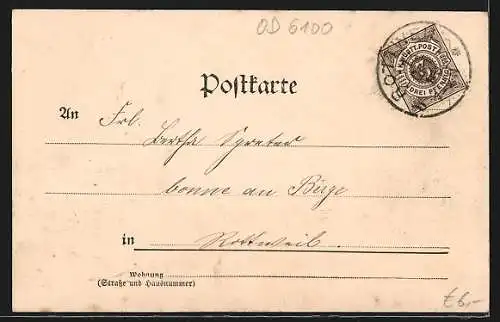 OD 6100
K. WÜRTT. POST
DREI PFENNIG
Postkarte
An Frl.
Bertha
bonne an
in Rottweil.
Wohnung
(Straße und Hausnummer)
€6,-